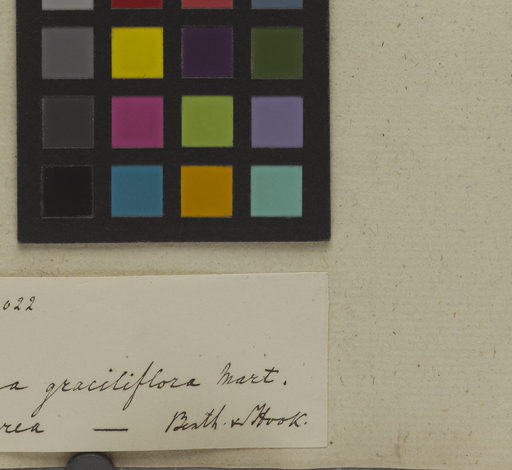 022
a graciliflora Mart.
rea — Benth. & Hook.